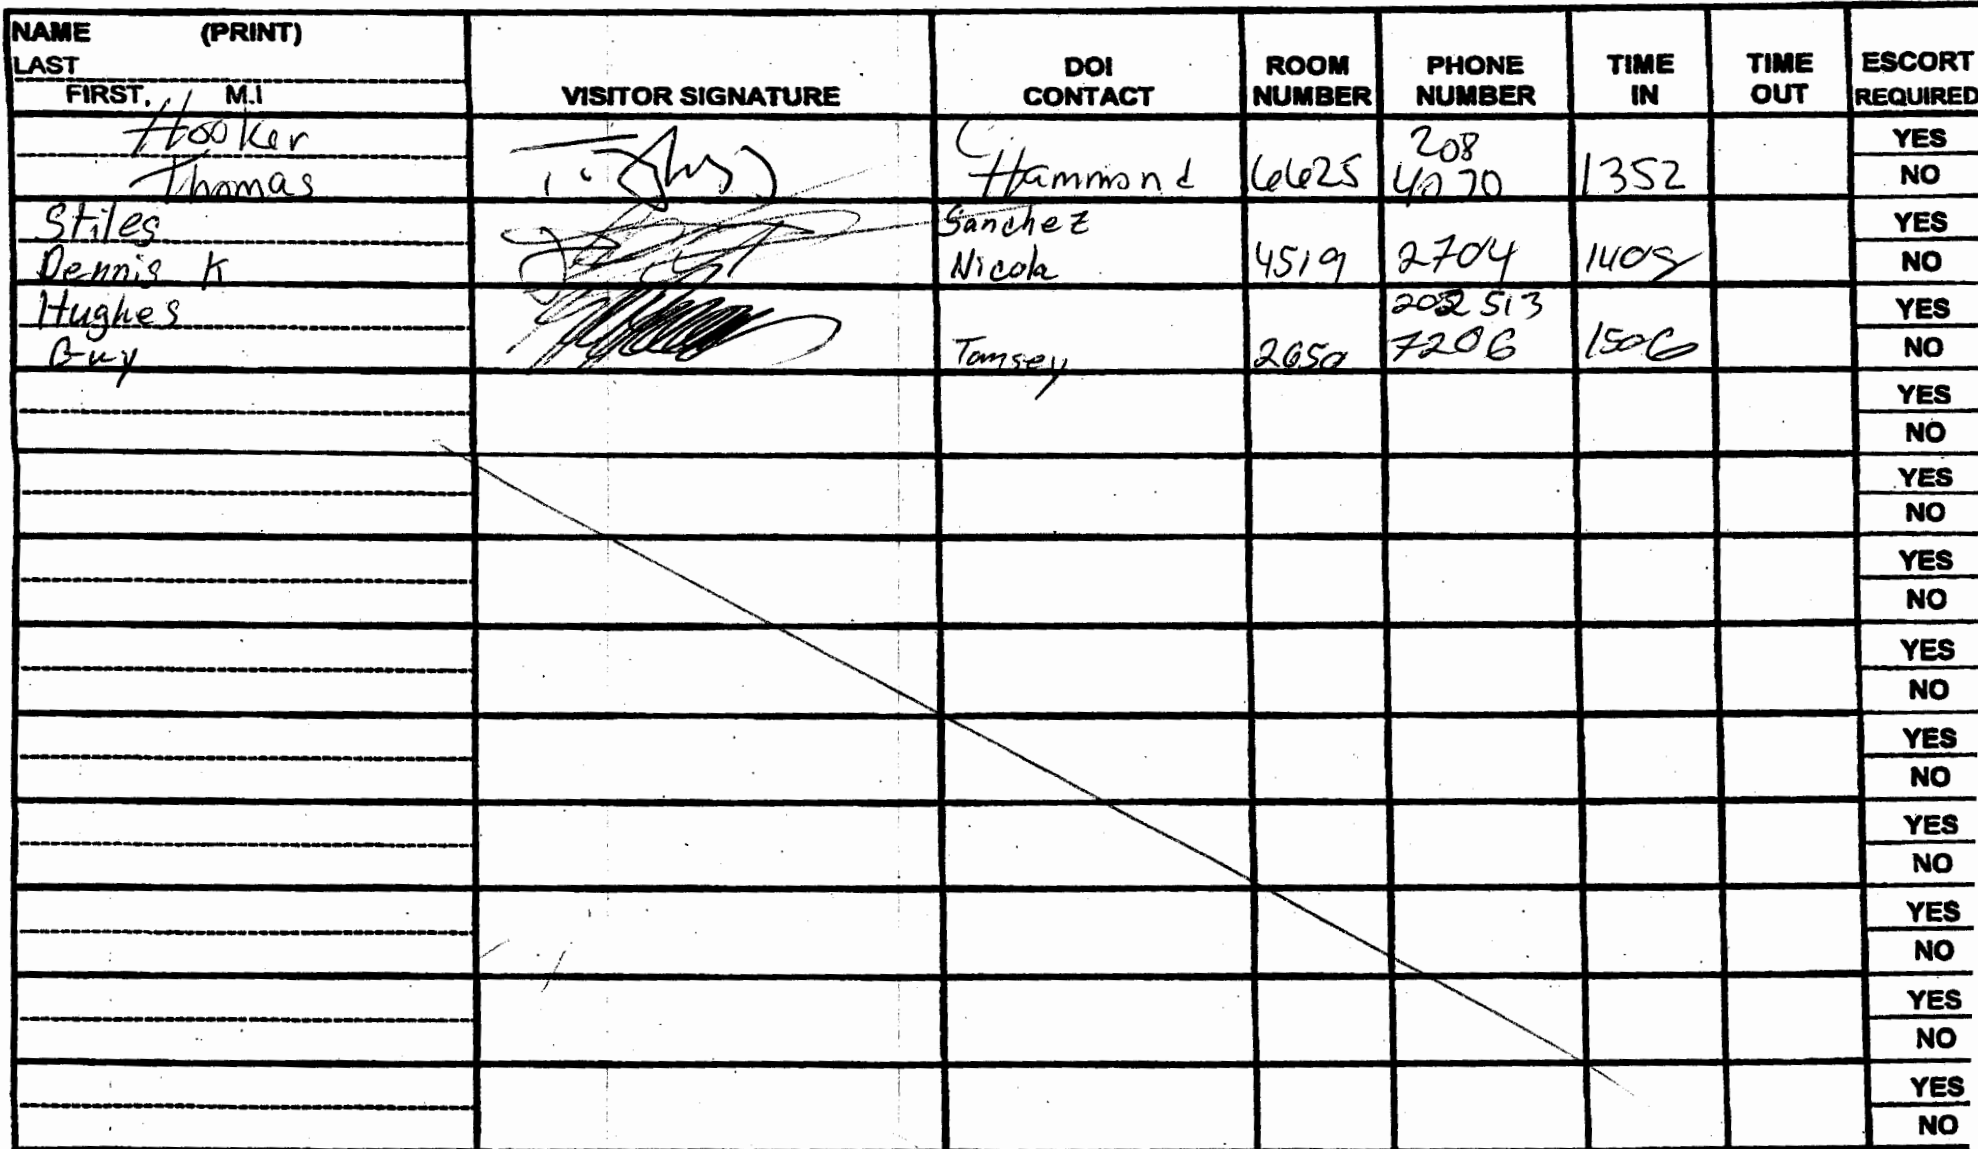 NAME (PRINT)
LAST
FIRST, M.I
VISITOR SIGNATURE
DOI CONTACT
ROOM NUMBER
PHONE NUMBER
TIME IN
TIME OUT
ESCORT REQUIRED
Hooker
Thomas
Hammond
6625
208
4070
1352
YES
NO
Stiles
Dennis K
Sanchez
Nicola
4519
2704
YES
NO
Hughes
Guy
Tamsey
2650
202 513
7206
1506
YES
NO
YES
NO
YES
NO
YES
NO
YES
NO
YES
NO
YES
NO
YES
NO
YES
NO
YES
NO